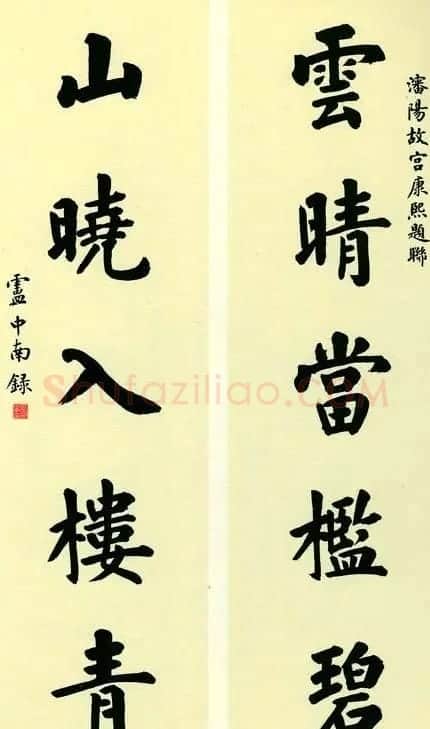 瀋陽故宫康熙題聯
雲晴當檻碧
山曉入樓青
盧中南録
Shufaziliao.COM